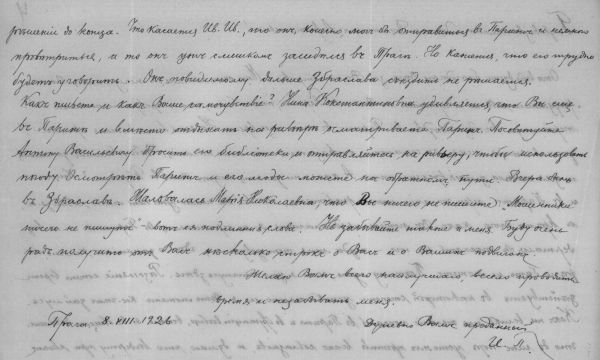 рѣшенiе до конца. Что касается Ив. Ив., то онъ, конечно могъ бы отправиться въ Парижъ и немного
провѣтриться, а то онъ ужъ слишкомъ засидѣлся въ Прагѣ. Но кажется, что его трудно
будетъ уговорить. Онъ повидимому дальше Збраслава съѣздить не рѣшается.
Какъ живете и какъ Ваше самочувствiе? Нина Константиновна удивляется, что Вы еще
въ Парижѣ и вмѣсто отдыхать на ривьерѣ осматриваете Парижъ. Посовѣтуйте
Антону Васильевичу бросить его библiотеки и отправляйтесь на ривьеру, чтобы использовать
погоду. Осмотрѣть Парижъ и его моды можете на обратномъ пути. Вчера былъ
въ Збраславѣ. Жаловалась Марiя Николаевна, что Вы ничего не пишете. „Мошенники
ничего не пишутъ" – вотъ ея подлинныя слова. Не забывайте также и меня. Буду очень
радъ получить отъ Васъ нѣсколько строкъ о Васъ и о Вашихъ
Желаю Вамъ всего наилучшаго, весело проводить
время и не забывать меня.
Прага 8. VIII. 1926 Душевно Вамъ преданный